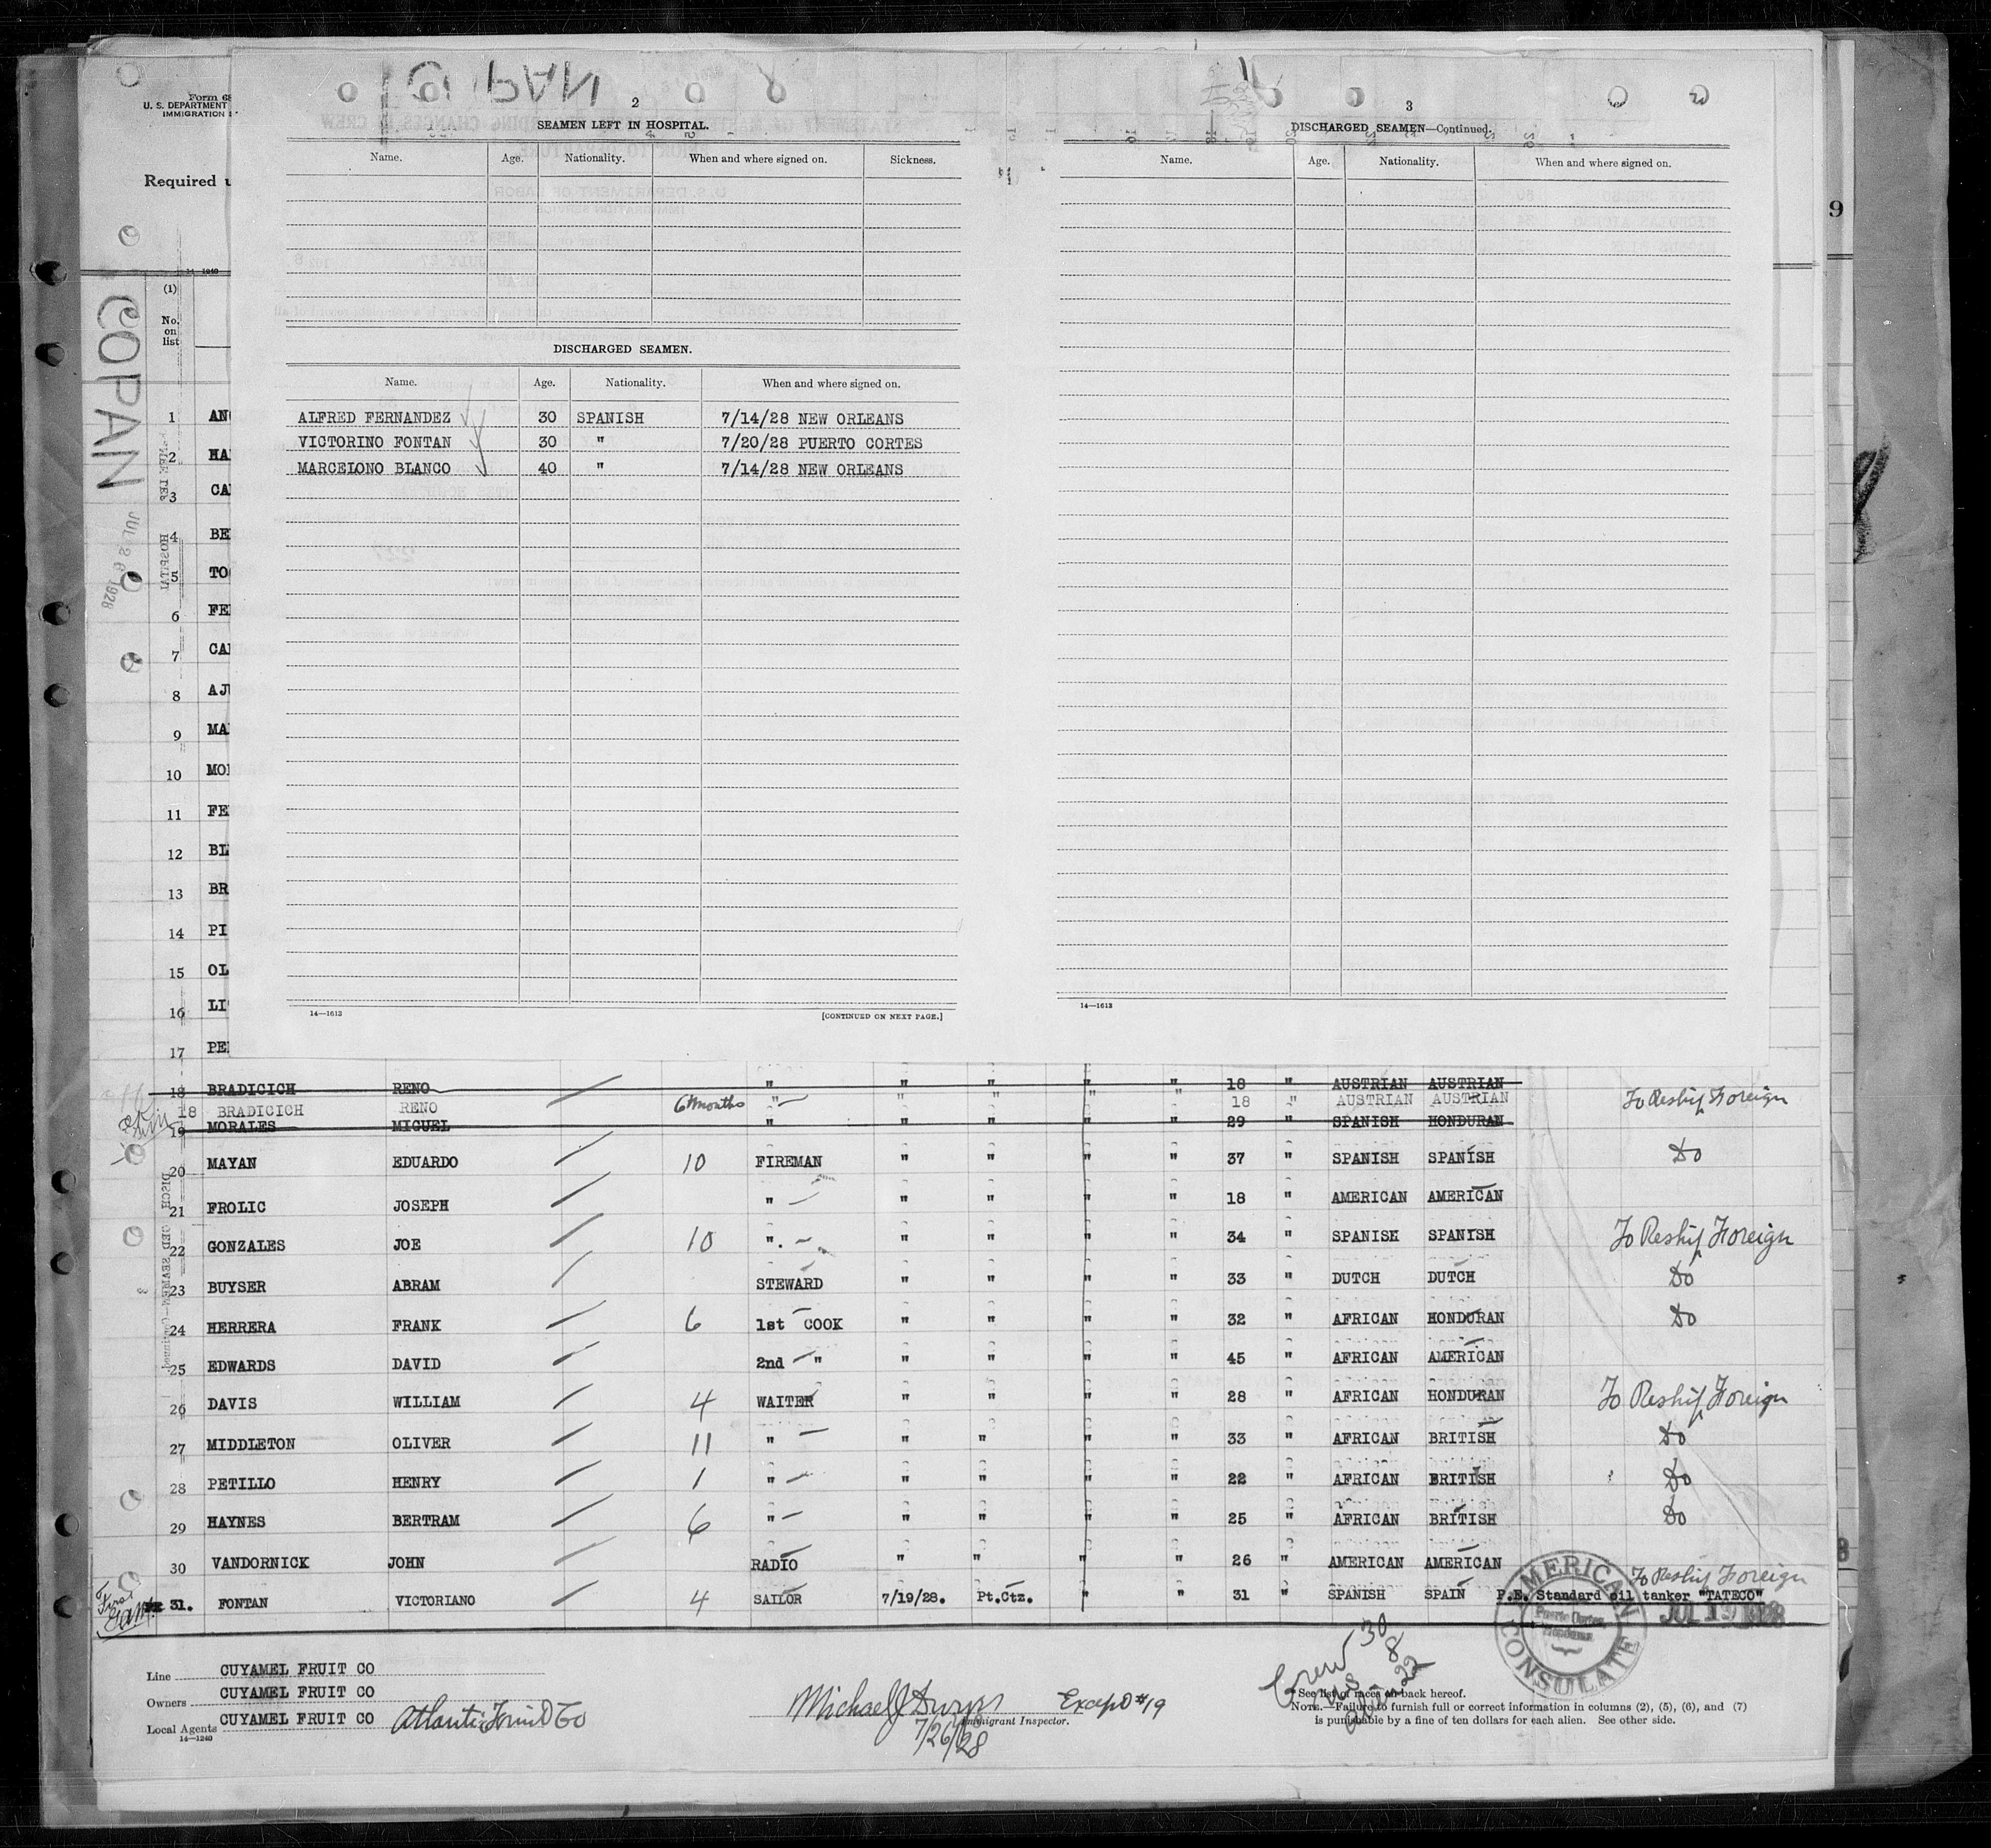 COPAN
Form 68
U. S. DEPARTMENT
IMMIGRATION
Required
14-1240
(1)
No. on list
COPAN
JUL 26 1928
2
SEAMEN LEFT IN HOSPITAL.
Name. Age. Nationality. When and where signed on. Sickness.
DISCHARGED SEAMEN.
Name. Age. Nationality. When and where signed on.
ALFRED FERNANDEZ 30 SPANISH 7/14/28 NEW ORLEANS
VICTORINO FONTAN 30 " 7/20/28 PUERTO CORTES
MARCELONO BLANCO 40 " 7/14/28 NEW ORLEANS
14—1613 [CONTINUED ON NEXT PAGE.]
3
DISCHARGED SEAMEN—Continued.
Name. Age. Nationality. When and where signed on.
14—1613
9
1 AN
2 HA
3 CA
4 BE
5 TO
6 FE
7 CA
8 AJ
9 MA
10 MO
11 FE
12 BL
13 BR
14 PI
15 OL
16 LI
17 PE
18 BRADICICH RENO " " " " " 18 " AUSTRIAN AUSTRIAN
18 BRADICICH RENO 6 months " " " " " 18 " AUSTRIAN AUSTRIAN To Reship Foreign
19 MORALES MIGUEL " " " " " 29 " SPANISH HONDURAN
20 MAYAN EDUARDO 10 FIREMAN " " " " 37 " SPANISH SPANISH Do
21 FROLIC JOSEPH " " " " " 18 " AMERICAN AMERICAN
22 GONZALES JOE 10 " " " " " 34 " SPANISH SPANISH To Reship Foreign
23 BUYSER ABRAM STEWARD " " " " 33 " DUTCH DUTCH Do
24 HERRERA FRANK 6 1st COOK " " " " 32 " AFRICAN HONDURAN Do
25 EDWARDS DAVID 2nd " " " " " 45 " AFRICAN AMERICAN
26 DAVIS WILLIAM 4 WAITER " " " " 28 " AFRICAN HONDURAN To Reship Foreign
27 MIDDLETON OLIVER 11 " " " " " 33 " AFRICAN BRITISH Do
28 PETILLO HENRY 1 " " " " " 22 " AFRICAN BRITISH Do
29 HAYNES BERTRAM 6 " " " " " 25 " AFRICAN BRITISH Do
30 VANDORNICK JOHN RADIO " " " " 26 " AMERICAN AMERICAN
To Reship Foreign
First
31. FONTAN VICTORIANO 4 SAILOR 7/19/28. Pt.Ctz. " " 31 " SPANISH SPAIN P.E. Standard oil tanker "TATECO"
JUL 19 1928
AMERICAN CONSULATE
Puerto Cortes, Honduras
Line CUYAMEL FRUIT CO
Owners CUYAMEL FRUIT CO
Local Agents CUYAMEL FRUIT CO Atlantic Fruit Co
14—1240
Michael J
7/26/28
Immigrant Inspector.
Except #19
Crew 30
US 8
Aliens 22
See list of races on back hereof.
NOTE.—Failure to furnish full or correct information in columns (2), (5), (6), and (7)
is punishable by a fine of ten dollars for each alien. See other side.